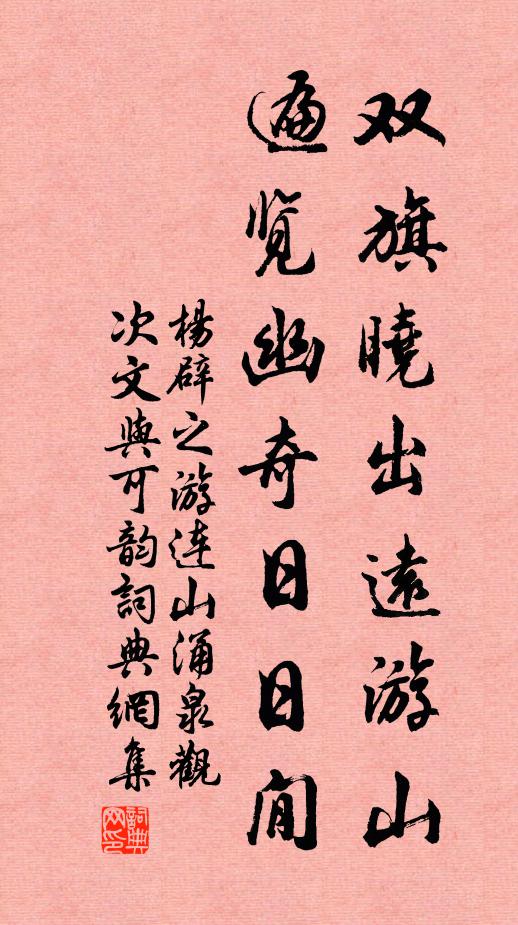 双旗曉出遠游山
遍览幽奇日日閒
楊辟之游连山涌泉觀
次文與可韵詞典網集
詞典
网印